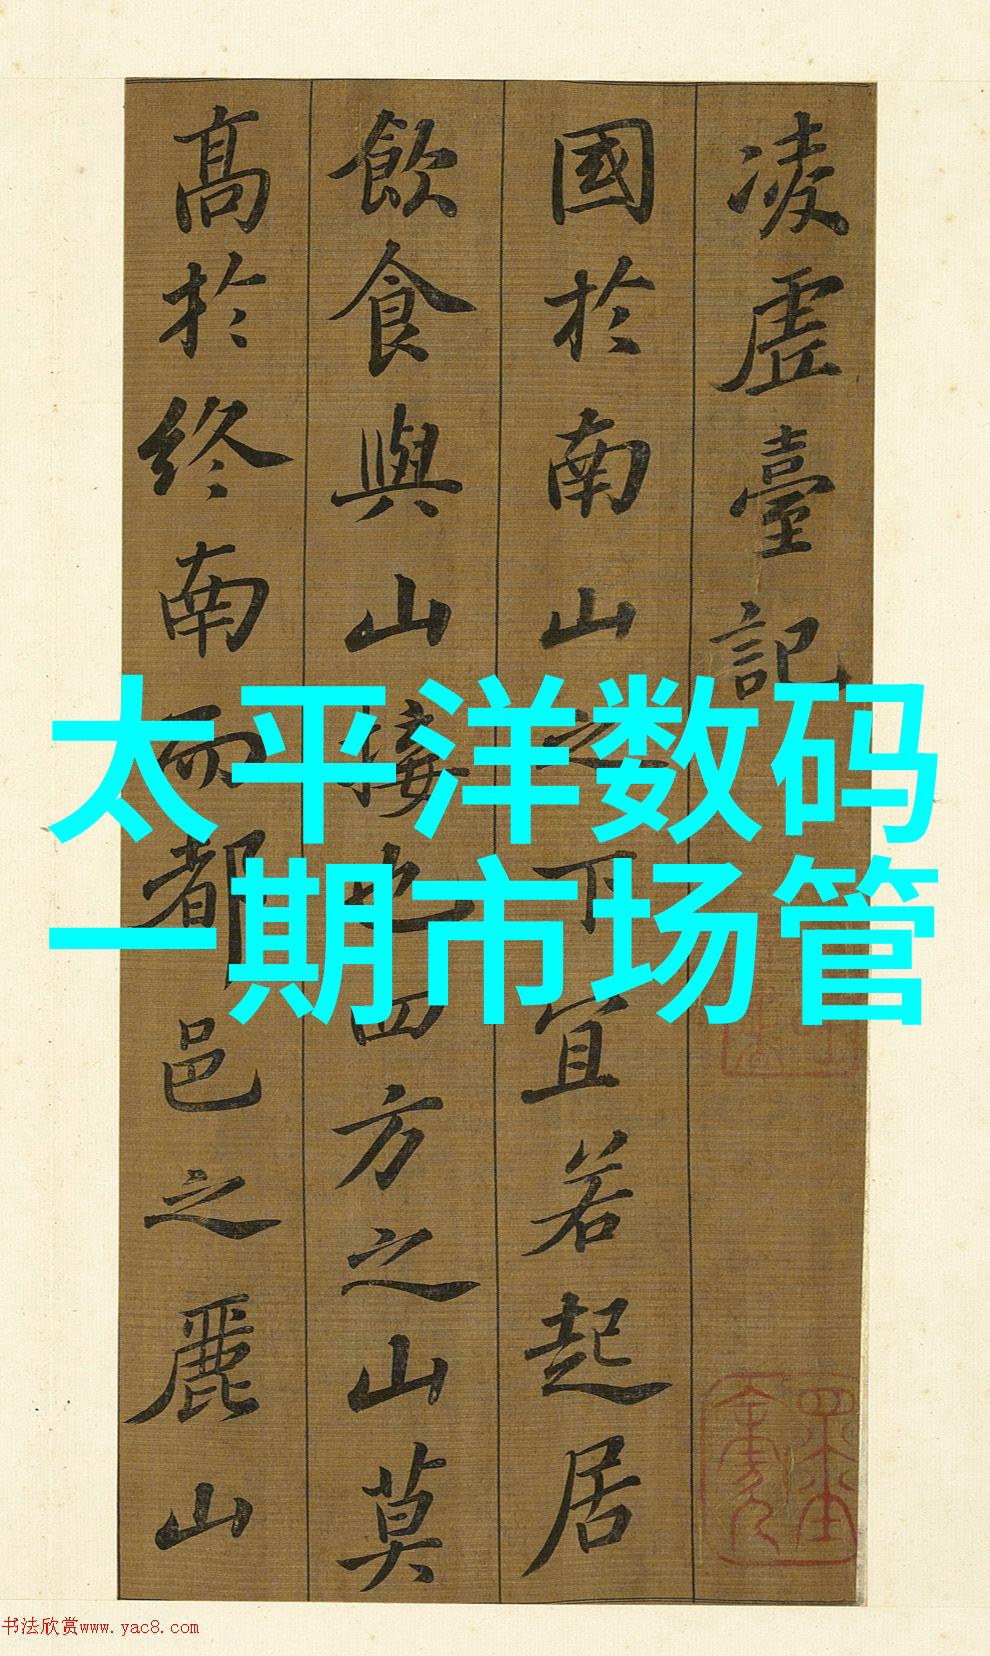 凌虛臺記
國於南山之下宜若起居
飲食與山接也四方之山莫
高於終南而都邑之麗山
太平洋数码
一期市场管
书法欣赏www.yac8.com